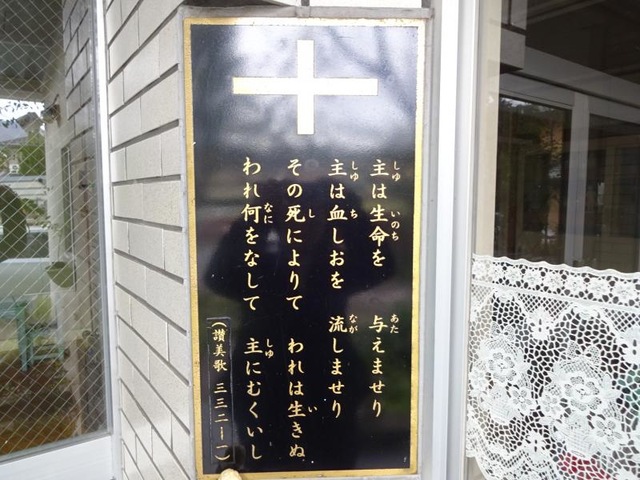 主は生命を 与えませり
主は血しおを 流しませり
その死によりて われは生きぬ
われ何をなして 主にむくいし
(讃美歌 三三二ー一)